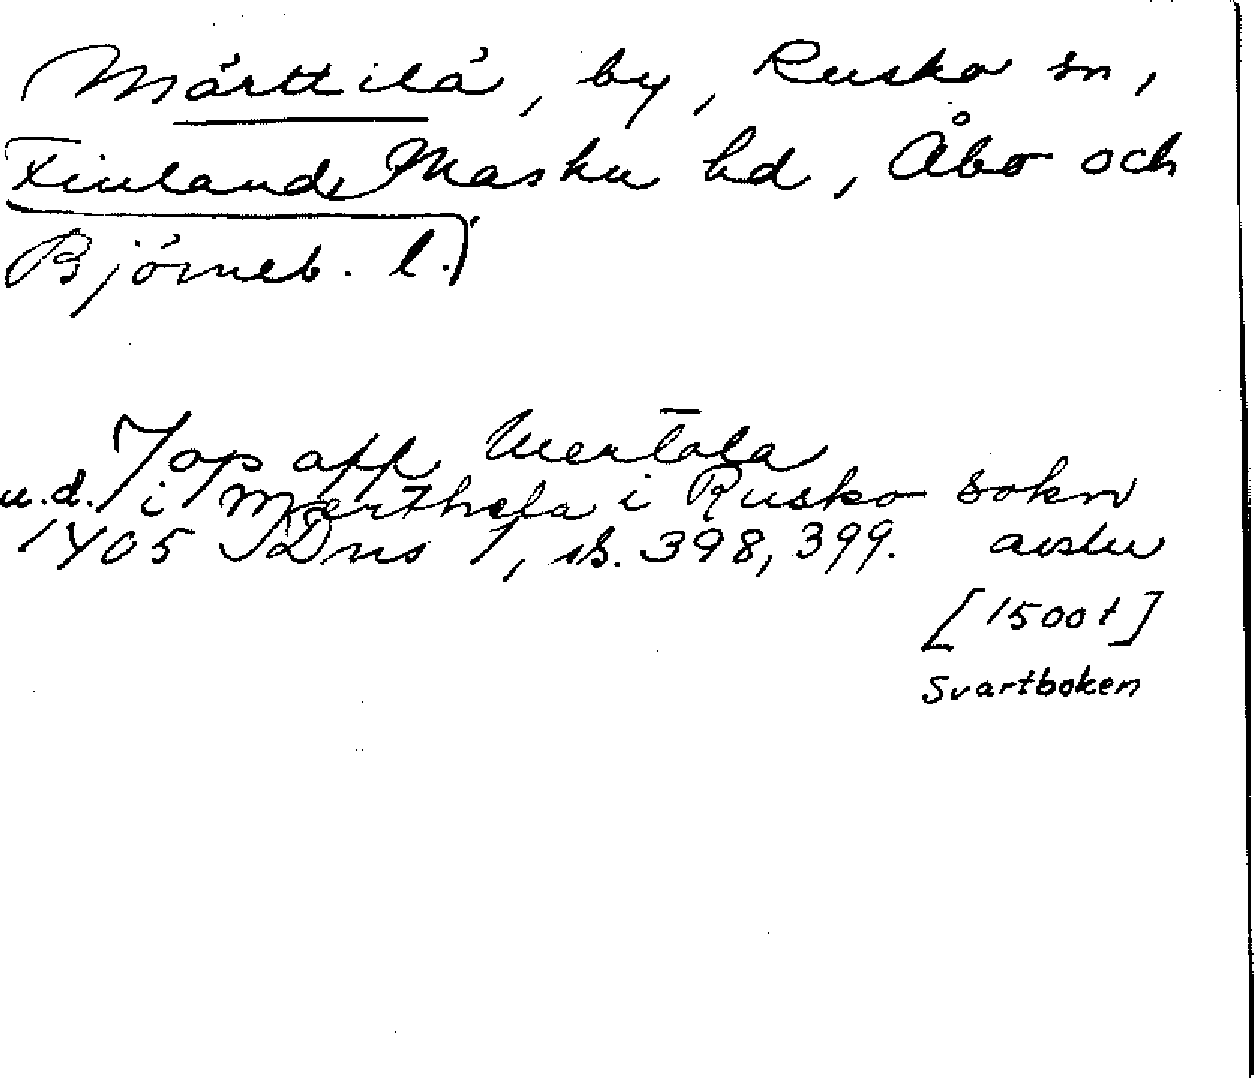 Märttilä, by, Rusko sn,
Finland, Masku hd, Åbo och
Björneb. l.)
Jop aff Mertola
u.d. i Merthela i Rusko sokn
1405 SDns 1, s. 398, 399. avskr
[1500t]
Svartboken